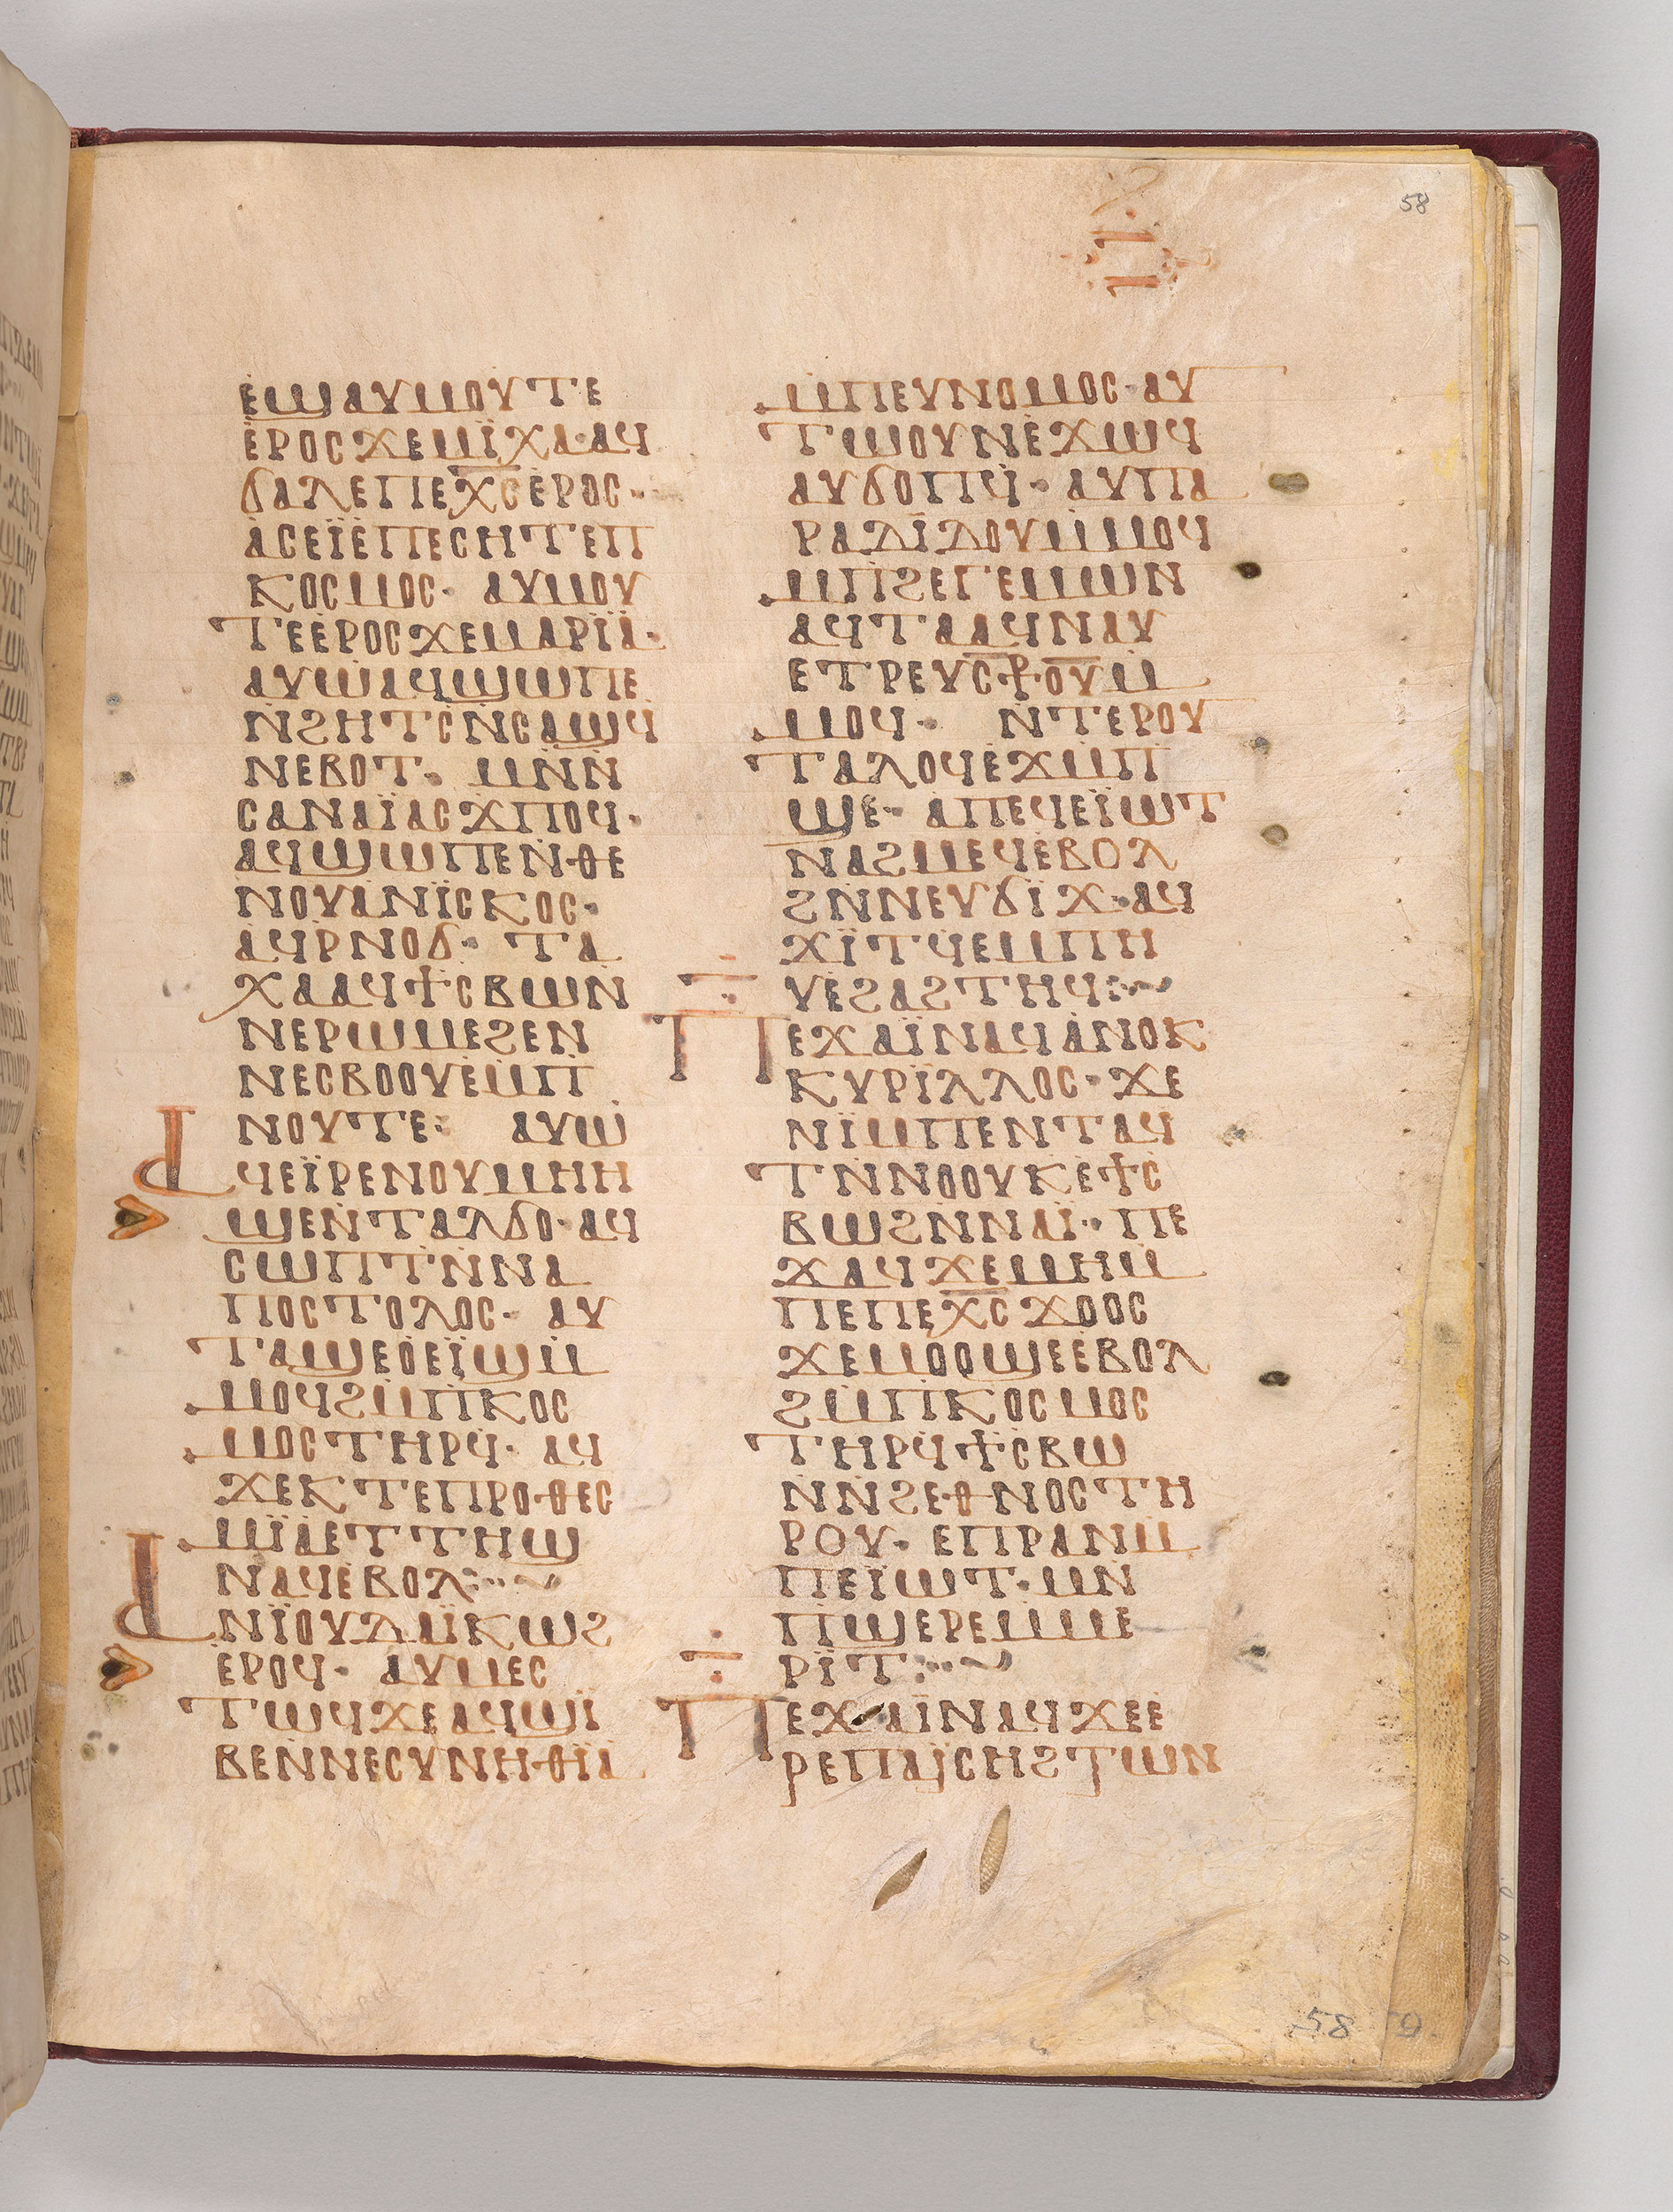 58
ⲉϣⲁⲩⲙⲟⲩⲧⲉ
ⲉⲣⲟⲥϫⲉⲙⲓ̈ⲭⲁ·ⲁϥ
ϭⲁⲗⲉⲡⲉⲭ̅ⲥ̅ⲉⲣⲟⲥ·
ⲁⲥⲉⲓ̈ⲉⲡⲉⲥⲏⲧⲉⲡ
ⲕⲟⲥⲙⲟⲥ· ⲁⲩⲙⲟⲩ
ⲧⲉⲉⲣⲟⲥϫⲉⲙⲁⲣⲓ̈ⲁ·
ⲁⲩⲱⲁϥϣⲱⲡⲉ
ⲛ̇ϩⲏⲧⲥⲛ̇ⲥⲁϣϥ
ⲛⲉⲃⲟⲧ· ⲙⲛ̇ⲛ̇
ⲥⲁⲛⲁⲓ̈ⲁⲥϫⲡⲟϥ·
ⲁϥϣⲱⲡⲉⲛ̇ⲑⲉ
ⲛⲟⲩⲁⲛⲓ̈ⲥⲕⲟⲥ·
ⲁϥⲣ̇ⲛⲟϭ· ⲧⲁ
ⲭⲁⲁϥϯⲥⲃⲱⲛ̇
ⲛⲉⲣⲱⲙⲉϩⲉⲛ
ⲛⲉⲥⲃⲟⲟⲩⲉⲙ̇ⲡ
ⲛⲟⲩⲧⲉ: ⲁⲩⲱ
ⲁϥⲉⲓ̈ⲣⲉⲛⲟⲩⲙⲏⲏ
ϣⲉⲛ̇ⲧⲁⲗϭⲟ·ⲁϥ
ⲥⲱⲡⲧⲛ̇ⲛⲁ
ⲡⲟⲥⲧⲟⲗⲟⲥ· ⲁⲩ
ⲧⲁϣⲉⲟⲉⲓ̈ϣⲙ̇
ⲙⲟϥϩⲙ̇ⲡⲕⲟⲥ
ⲙⲟⲥⲧⲏⲣϥ· ⲁϥ
ϫⲉⲕⲧⲉⲡⲣⲟⲑⲉⲥ
ⲙⲓ̈ⲁⲉⲧⲧⲏϣ
ⲛⲁϥⲉⲃⲟⲗ:·~
ⲁⲛⲓ̈ⲟⲩⲇⲁⲓ̈ⲕⲱϩ
ⲉⲣⲟϥ· ⲁⲩⲙⲉⲥ
ⲧⲱϥϫⲉⲁϥϣⲓ̈
ⲃⲉⲛ̇ⲛⲉⲥⲩⲛⲏⲑⲓ̈ⲁ
ⲙ̇ⲡⲉⲩⲛⲟⲙⲟⲥ·ⲁⲩ
ⲧⲱⲟⲩⲛⲉϫⲱϥ
ⲁⲩϭⲟⲡϥ̇· ⲁⲩⲡⲁ
ⲣⲁⲇⲓ̈ⲇⲟⲩⲙ̇ⲙⲟϥ
ⲙ̇ⲡϩⲉⲅⲉⲙⲱⲛ
ⲁϥⲧⲁⲁϥⲛⲁⲩ
ⲉⲧⲣⲉⲩⲥ̅ⲣ̅ⲟ̅ⲩ̅ⲙ̇
ⲙⲟϥ· ⲛ̇ⲧⲉⲣⲟⲩ
ⲧⲁⲗⲟϥⲉϫⲙ̇ⲡ
ϣⲉ· ⲁⲡⲉϥⲉⲓ̈ⲱⲧ
ⲛⲁϩⲙⲉϥⲉⲃⲟⲗ
ϩⲛ̇ⲛⲉⲩϭⲓ̈ϫ·ⲁϥ
ϫⲓ̈ⲧϥ̇ⲉⲙⲡⲏ
ⲩⲉϩⲁϩⲧⲏϥ:·~
ⲡⲉϫⲁⲓ̈ⲛⲁϥⲁⲛⲟⲕ
ⲕⲩⲣⲓ̈ⲗⲗⲟⲥ·ϫⲉ
ⲛⲓ̈ⲙⲡⲉⲛⲧⲁϥ
ⲧⲛ̇ⲛⲟⲟⲩⲕⲉϯⲥ
ⲃⲱϩⲛ̇ⲛⲁⲓ̈·ⲡⲉ
ϫⲁϥϫⲉⲙⲏⲙ̇
ⲡⲉⲡⲉⲭ̅ⲥ̅ϫⲟⲟⲥ
ϫⲉⲙⲟⲟϣⲉⲉⲃⲟⲗ
ϩⲙ̇ⲡⲕⲟⲥⲙⲟⲥ
ⲧⲏⲣϥ̇ϯⲥⲃⲱ
ⲛ̇ⲛ̇ϩⲉⲑⲛⲟⲥⲧⲏ
ⲣⲟⲩ· ⲉⲡⲣⲁⲛⲙ̇
ⲡⲉⲓ̈ⲱⲧ·ⲙⲛ̇
ⲡϣⲉⲣⲉⲙ̇ⲙⲉ
ⲣⲓ̈ⲧ:·~
ⲡⲉϫⲁⲓ̈ⲛⲁϥϫⲉⲉ
ⲣⲉⲡⲁⲓ̈ⲥⲏϩⲧⲱⲛ
58